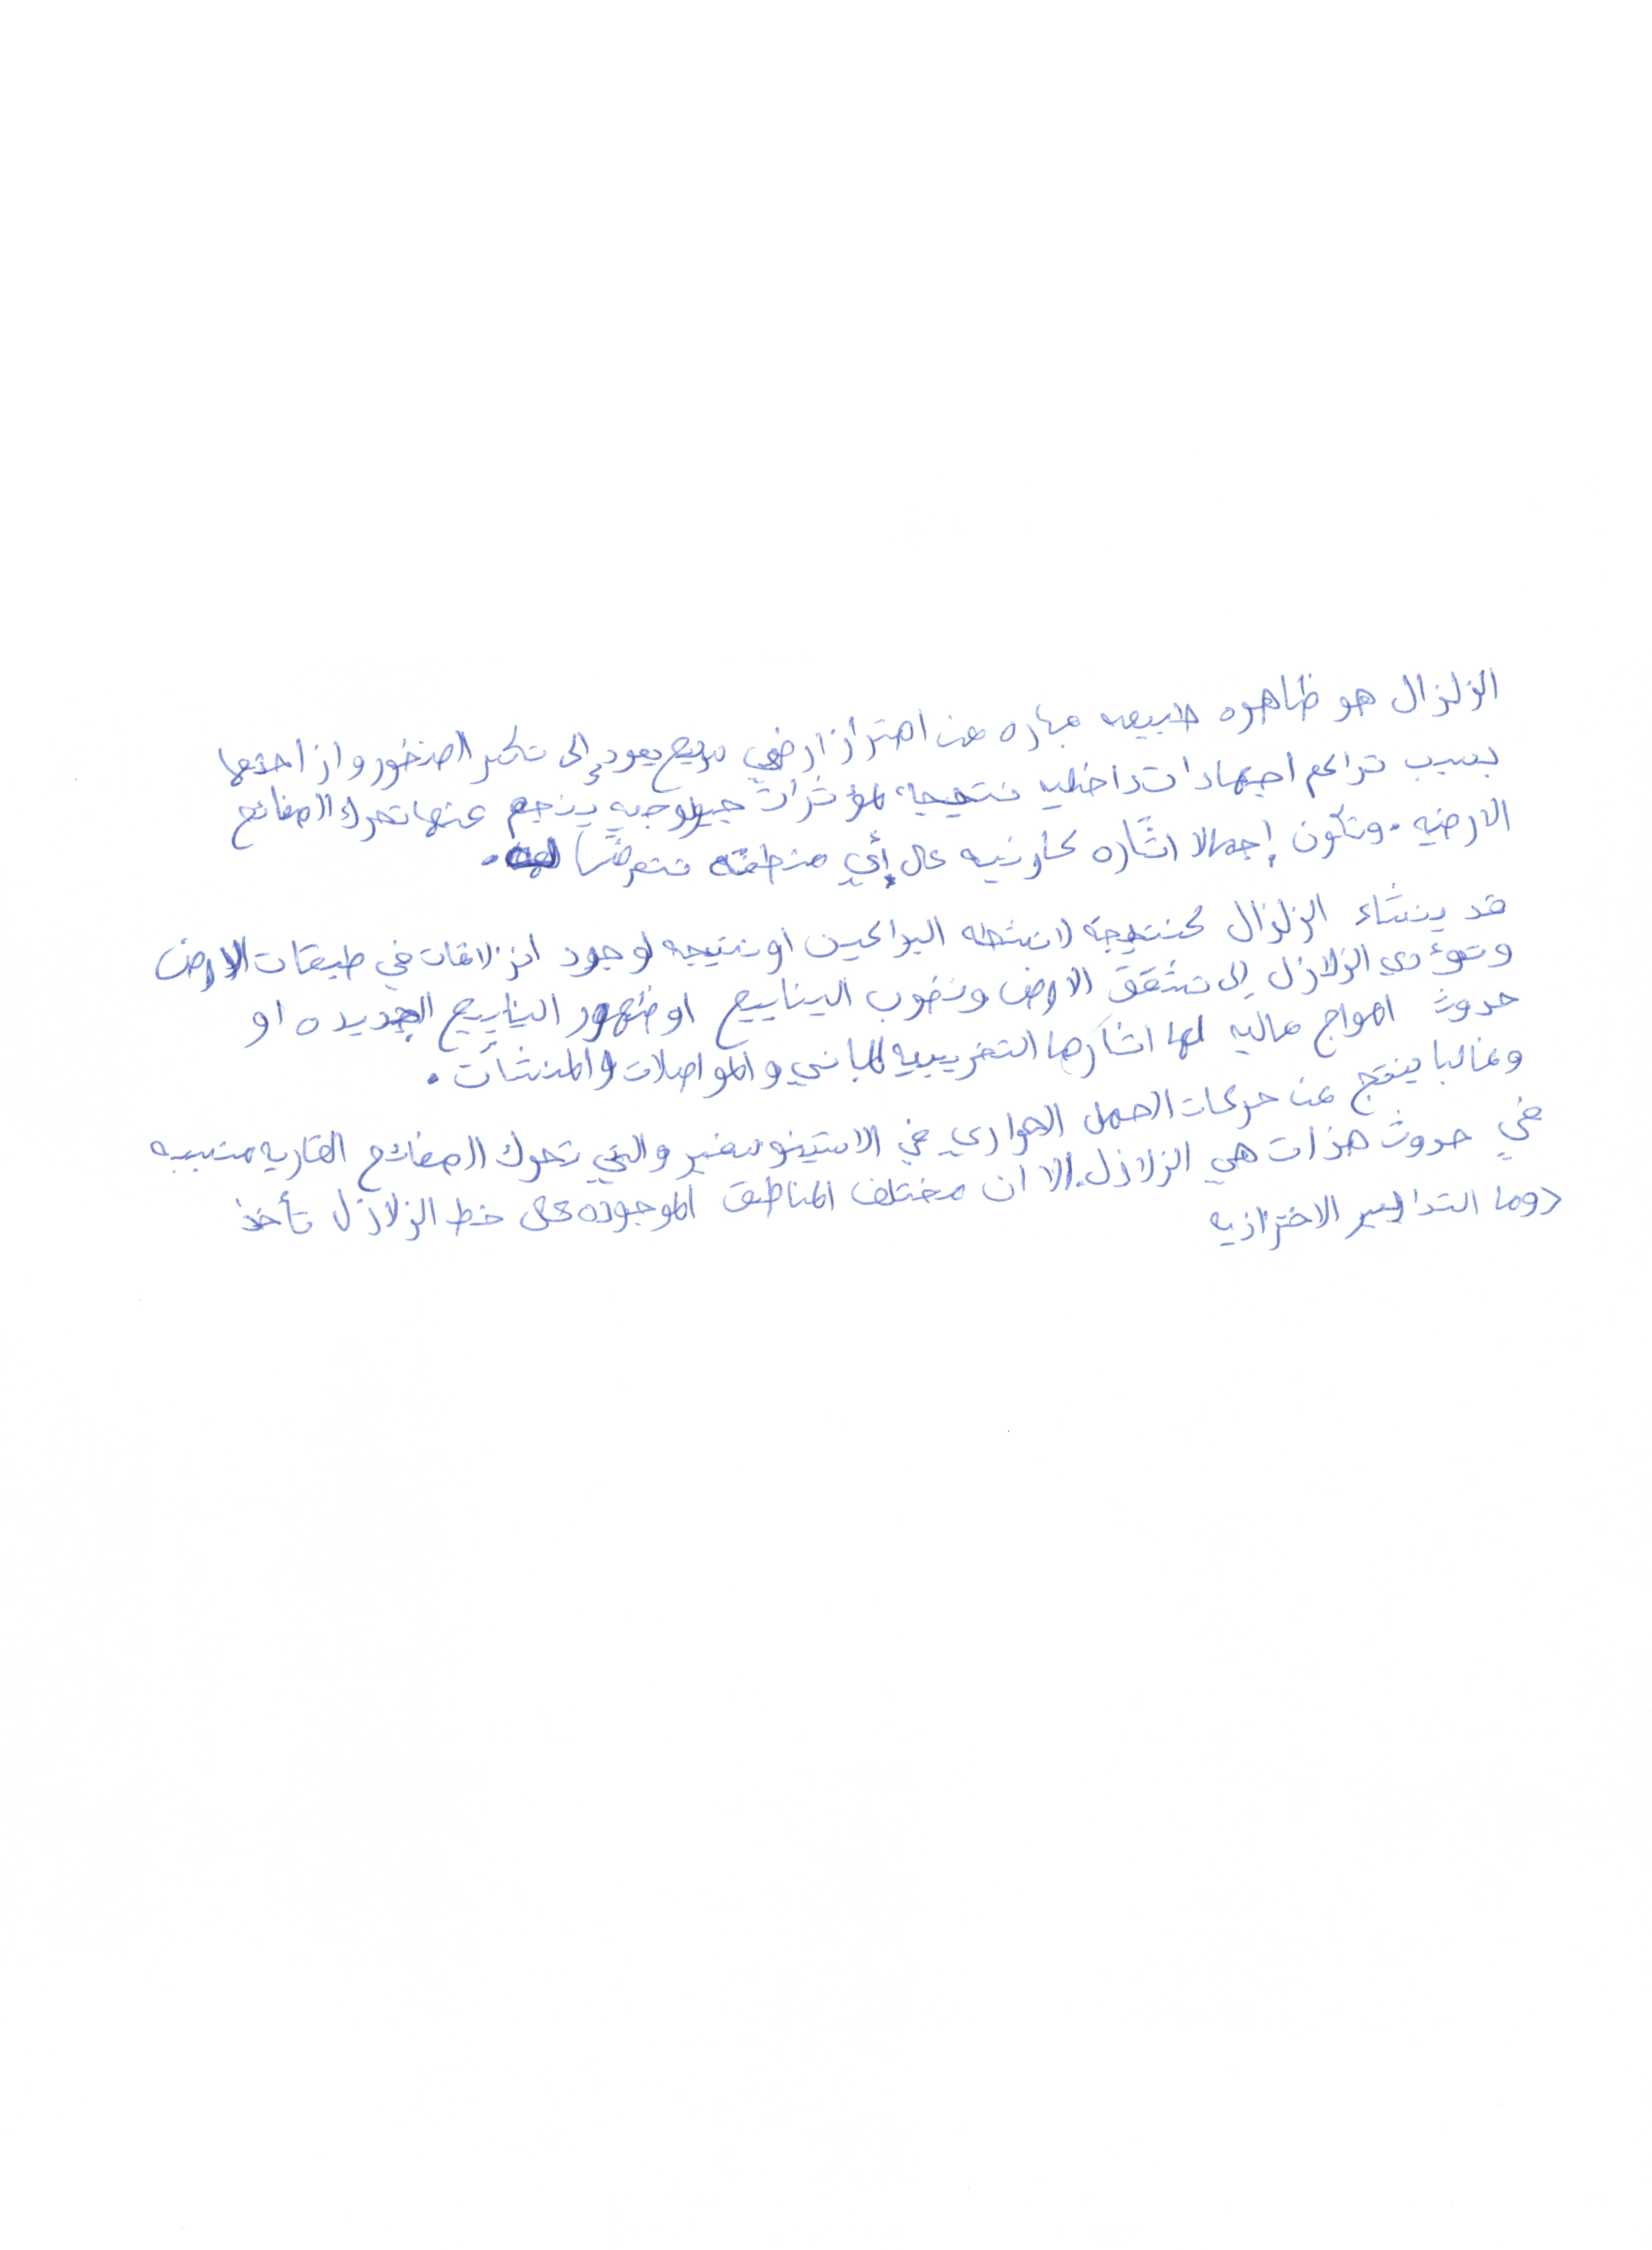 الزلزال هو ظاهره طبيعه عباره عن اهتزاز ارضي سريع يعود إلى تكسر الصخور وازاحتها
بسبب تراكم اجهادات داخليه نتيجه لمؤثرات جيولوجيه ينجم عنها تحرك الصفائح
الارضيه. وتكون إجمالا اثاره كارثيه حال أي منطقه تتعرض لها.
قد ينشاء الزلزال كنتيجة لانشطه البراكين او نتيجه لوجود انزلاقات في طبقات الارض
وتؤدي الزلازل إلى تشقق الارض ونضوب الينابيع او ظهور الينابيع الجديده او
حدوث امواج عاليه لها اثارها التخريبيه للمباني والمواصلات والمنشأت.
وغالبا ينتج عن حركات الحمل الحراري في الاستينوسفير والتي تحرك الصفائح القاريه متسببه
في حدوث هزات هي الزلازل. الا ان مختلف المناطق الموجوده على خط الزلازل تأخذ
دوما التدابير الاحترازيه